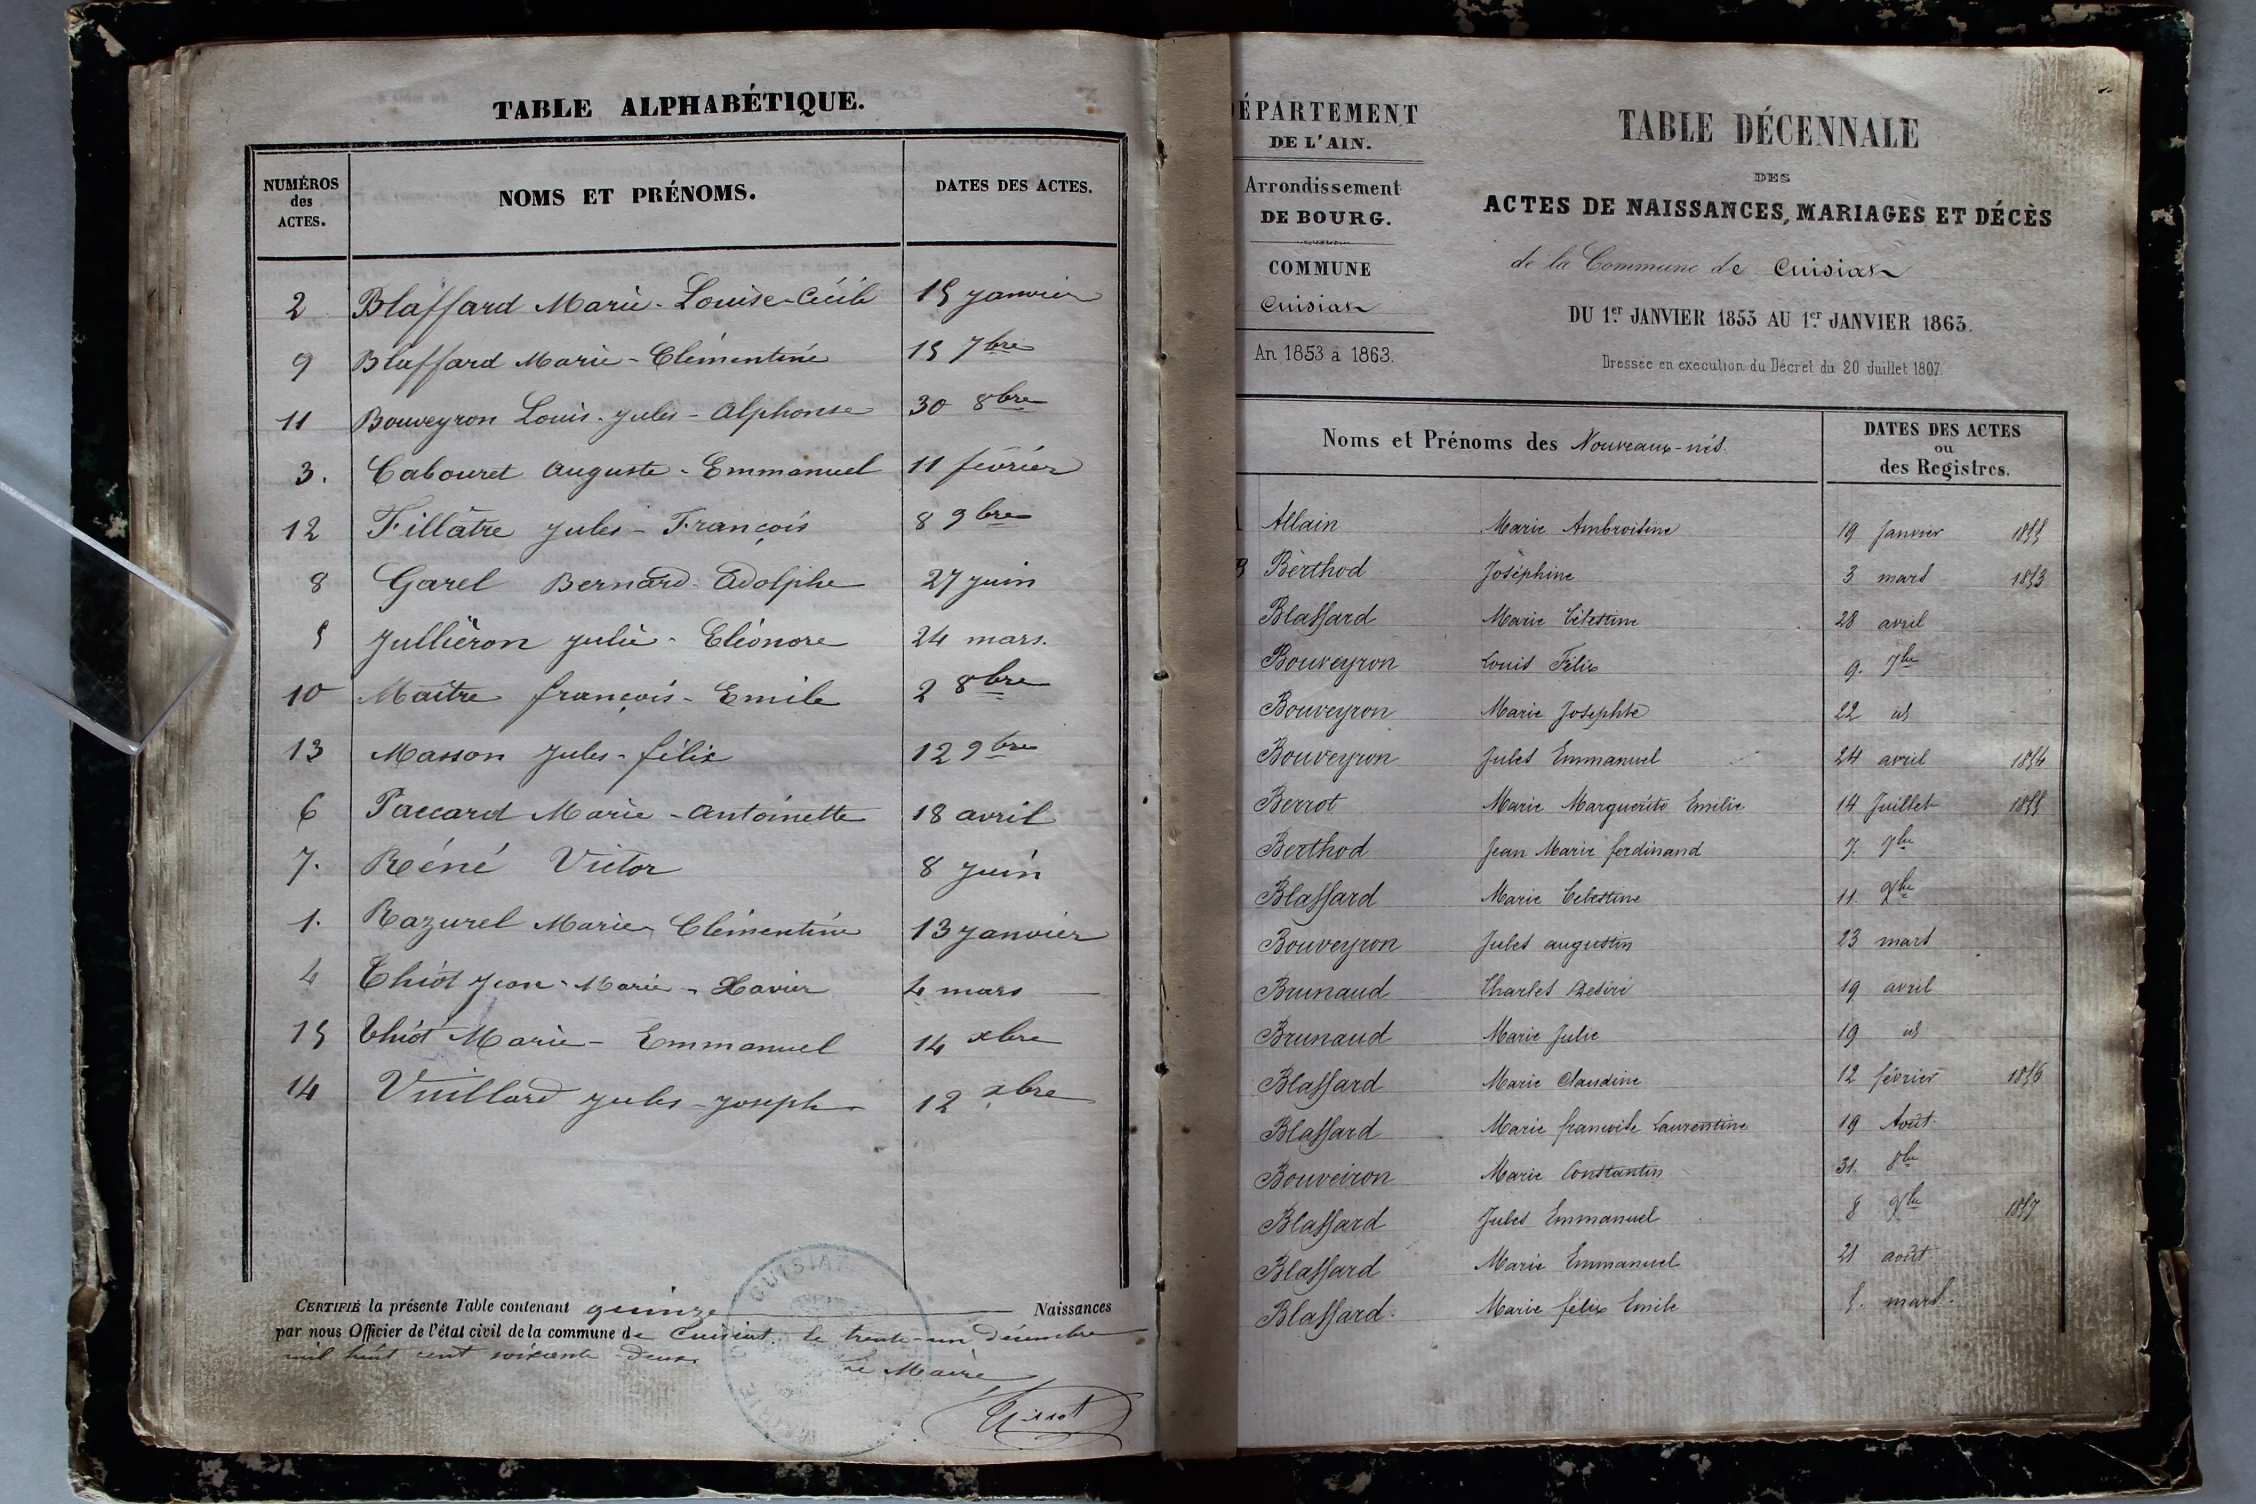 TABLE ALPHABÉTIQUE.
NUMÉROS des ACTES. NOMS ET PRÉNOMS. DATES DES ACTES.
2 Blaffard Marie-Louise-Cécile 15 janvier
9 Blaffard Marie-Clémentine 15 7bre
11 Bouveyron Louis-Jules-Alphonse 30 8bre
3. Cabouret Auguste-Emmanuel 11 février
12 Fillâtre Jules-François 8 9bre
8 Garel Bernard-Edolphe 27 juin
5 Jullièron Julie-Eléonore 24 mars.
10 Maître françois-Emile 2 8bre
13 Masson Jules-félix 12 9bre
6 Paccard Marie-Antoinette 18 avril
7. Réné Victor 8 juin
1. Razurel Marie Clémentine 13 janvier
4 Thiot Jean-Marie-Xavier 4 mars
15 Thiot Marie-Emmanuel 14 xbre
14 Vuillard Jules-Joseph 12 xbre
CERTIFIÉ la présente Table contenant quinze Naissances
par nous Officier de l'état civil de la commune de Cuisiat. le trente-un décembre
mil huit cent soixante-deux
Le Maire
DÉPARTEMENT
DE L'AIN.
Arrondissement
DE BOURG.
COMMUNE
Cuisiat
An 1853 à 1863.
TABLE DÉCENNALE
DES
ACTES DE NAISSANCES, MARIAGES ET DÉCÈS
de la Commune de Cuisiat
DU 1er JANVIER 1853 AU 1er JANVIER 1863.
Dressée en exécution du Décret du 20 Juillet 1807.
Noms et Prénoms des Nouveaux-nés. DATES DES ACTES ou des Registres.
Allain Marie Ambroisine 19 Janvier 1855
B Bèrthod Joséphine 3 mars 1853
Blaffard Marie Célestine 28 avril
Bouveyron Louis Félix 9. 7bre
Bouveyron Marie Josephte 22 id
Bouveyron Jules Emmanuel 24 avril 1854
Berrot Marie Marguerite Emilie 14 Juillet 1855
Berthod Jean Marie ferdinand 7. 7bre
Blaffard Marie Celestine 11. Xbre
Bouveyron Jules augustin 23 mars
Brunaud Charles Desiré 19 avril
Brunaud Marie Julie 19 id
Blaffard Marie Claudine 12 février 1856
Blaffard Marie francoise Laurentine 19 Août.
Bouveiron Marie Constantin 31. 8bre
Blaffard Jules Emmanuel 8 Xbre 1857
Blaffard Marie Emmanuel 21 août
Blaffard. Marie félix Emile 5. mars.